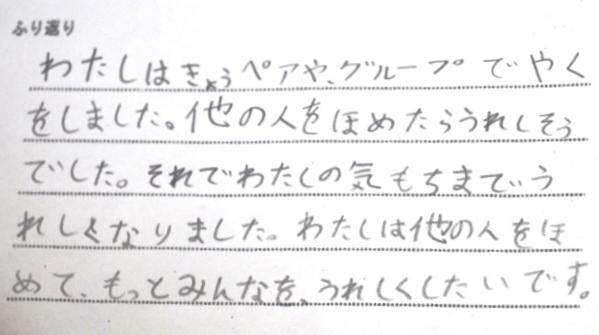 ふり返り
わたしはきょうペアや、グループでやく
をしました。他の人をほめたらうれしそう
でした。それでわたしの気もちまでう
れしくなりました。わたしは他の人をほ
めて、もっとみんなを、うれしくしたいです。